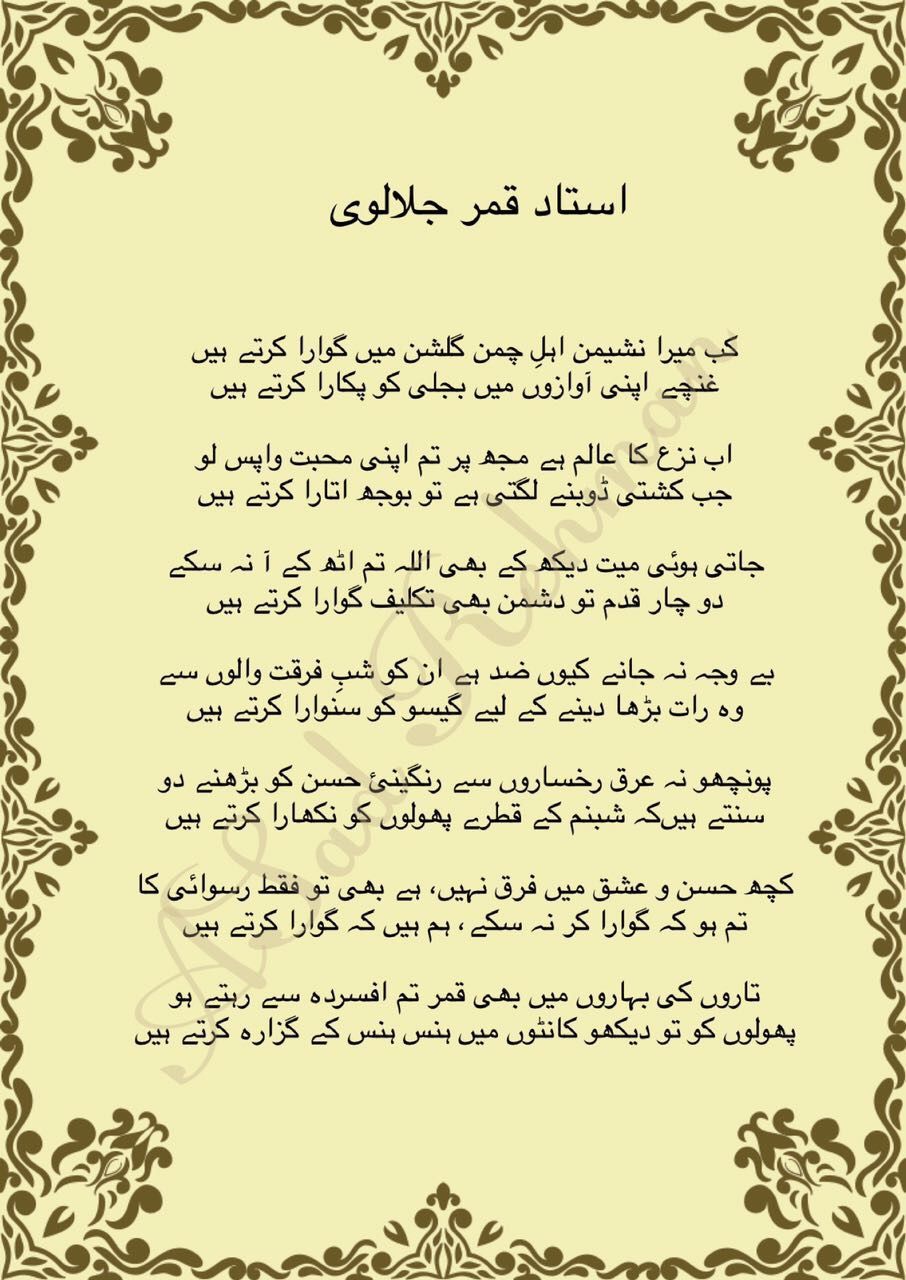 استاد قمر جلالوی
کب میرا نشیمن اہلِ چمن گلشن میں گوارا کرتے ہیں
غنچے اپنی آوازوں میں بجلی کو پکارا کرتے ہیں
اب نزع کا عالم ہے مجھ پر تم اپنی محبت واپس لو
جب کشتی ڈوبنے لگتی ہے تو بوجھ اتارا کرتے ہیں
جاتی ہوئی میت دیکھ کے بھی اللہ تم اٹھ کے آ نہ سکے
دو چار قدم تو دشمن بھی تکلیف گوارا کرتے ہیں
بے وجہ نہ جانے کیوں ضد ہے ان کو شبِ فرقت والوں سے
وہ رات بڑھا دینے کے لیے گیسو کو سنوارا کرتے ہیں
پونچھو نہ عرق رخساروں سے رنگینئ حسن کو بڑھنے دو
سنتے ہیںکہ شبنم کے قطرے پھولوں کو نکھارا کرتے ہیں
کچھ حسن و عشق میں فرق نہیں، ہے بھی تو فقط رسوائی کا
تم ہو کہ گوارا کر نہ سکے، ہم ہیں کہ گوارا کرتے ہیں
تاروں کی بہاروں میں بھی قمر تم افسردہ سے رہتے ہو
پھولوں کو تو دیکھو کانٹوں میں ہنس ہنس کے گزارہ کرتے ہیں
Rehman